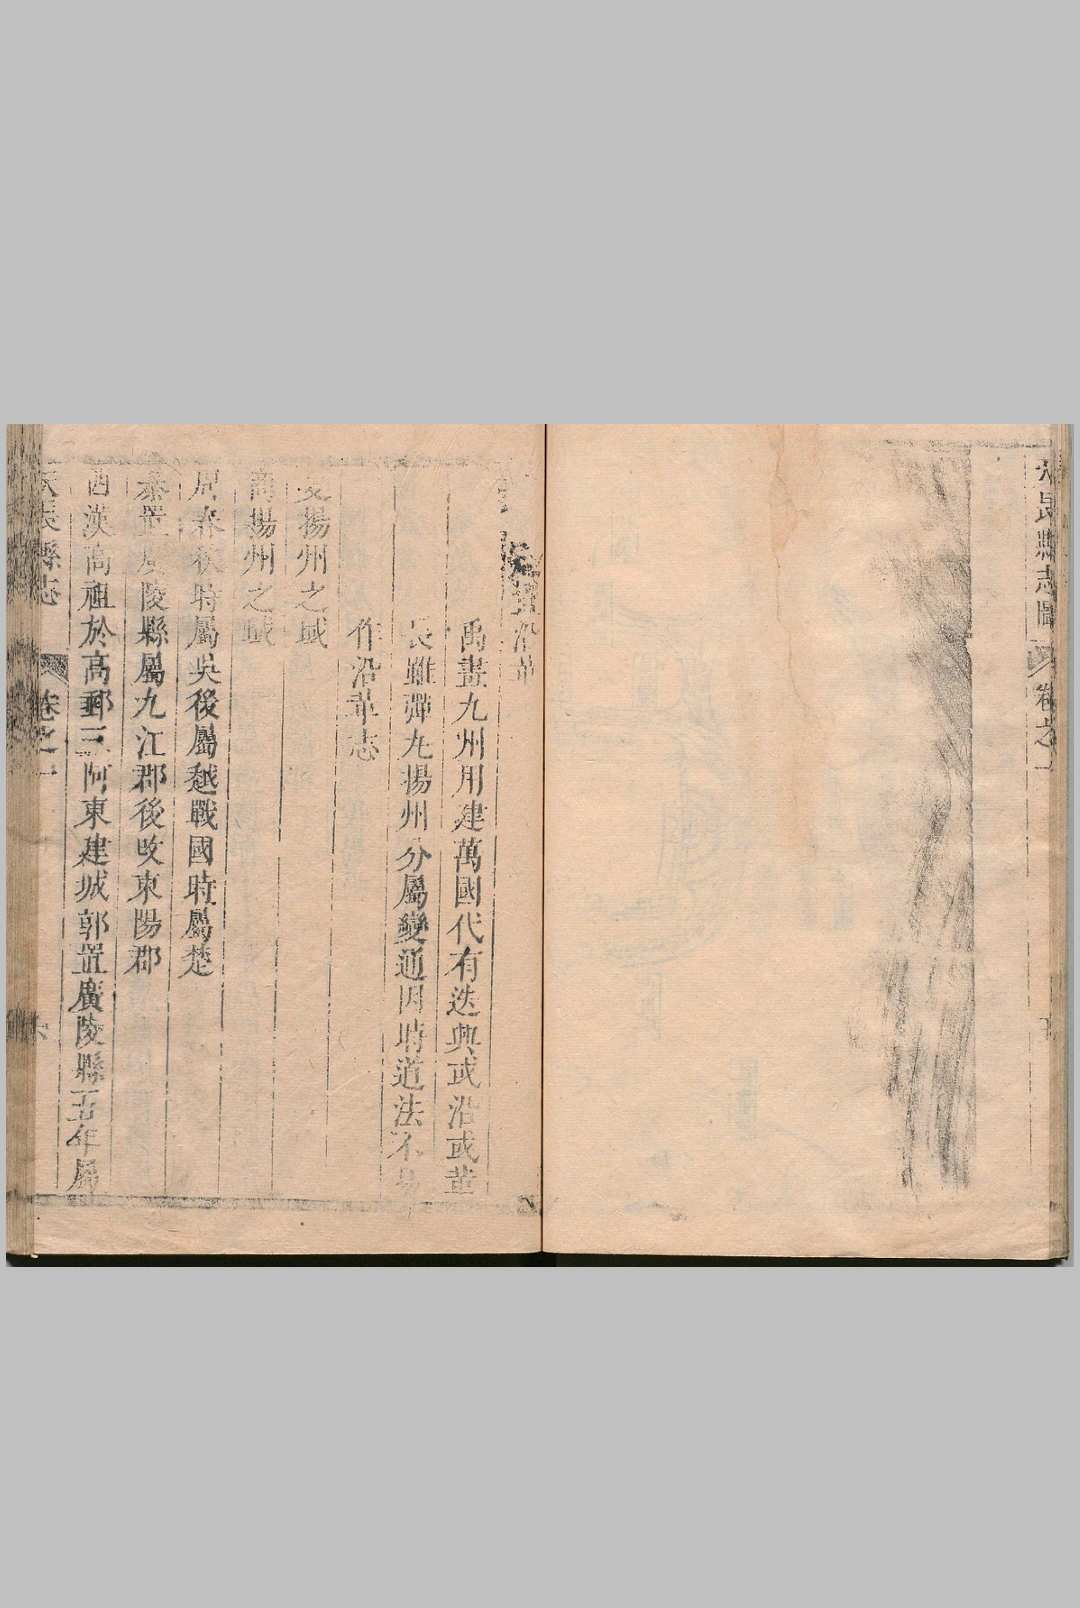 天長縣志圖 卷之一
沿革
禹畫九州用建萬國代有迭興或沿或革
長雖彈丸揚州分屬變通因時道法不易
作沿革志
夏揚州之域
商揚州之域
周春秋時屬吳後屬越戰國時屬楚
秦置廣陵縣屬九江郡後改東陽郡
西漢高祖於高郵三阿東建城郭置廣陵縣五年屬
天長縣志 卷之一